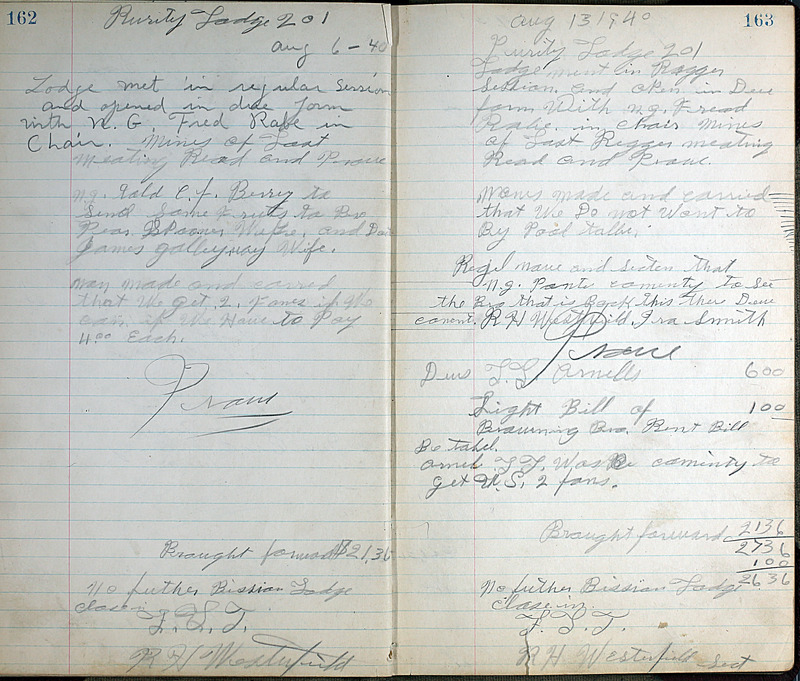 162
Purity Lodge 201
aug 6 - 40
Lodge met in regular Session
and opened in due form
with N. G. Fred Rabe in
Chair. Mines of Last
Meating Read and Prove
n.g. told C. f. Berry to
Send Some Fruts to Bro
Pear. Spooner Wafre, and
James galleyway Wife.
man made and carred
that We get, 2, Fanes if We
can if We Have to Pay
4.00 Each.
Prove
Braught forward $21,36
No futher Bissian Lodge
close in
F. L. T.
R H Westerfield
163
aug 13 1940
Purity Lodge 201
Lodge ment in Ragger
Session and open in Deu
form With n.g. Fread
Rabe. in chair Mines
of Last Regger meating
Read and Prove.
Mones made and carred
that We Do not Want to
By Pool talbe.
Regl move and Secten that
n.g. Pante caminty to See
the Bro that is Back this there Deue
R H Westerfild. Ira Smith
Prove
Deus L.L. Arnells 600
Light Bill of 100
Braurning Bro. Rent Bill
Be tabel.
L.L. Was Be caminty to
get U.S. 2 fans.
Braught forward 2136
2736
100
2636
No futher Bissian Lodge
close in
F. L. T.
R H Westerfield Sect